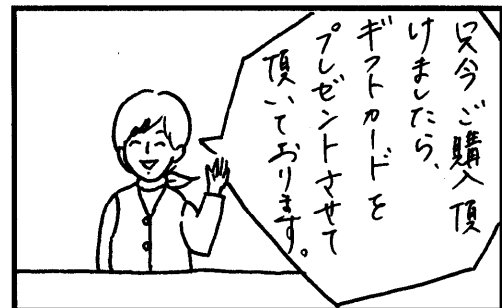 只今ご購入頂
けましたら、
ギフトカードを
プレゼントさせて
頂いております。